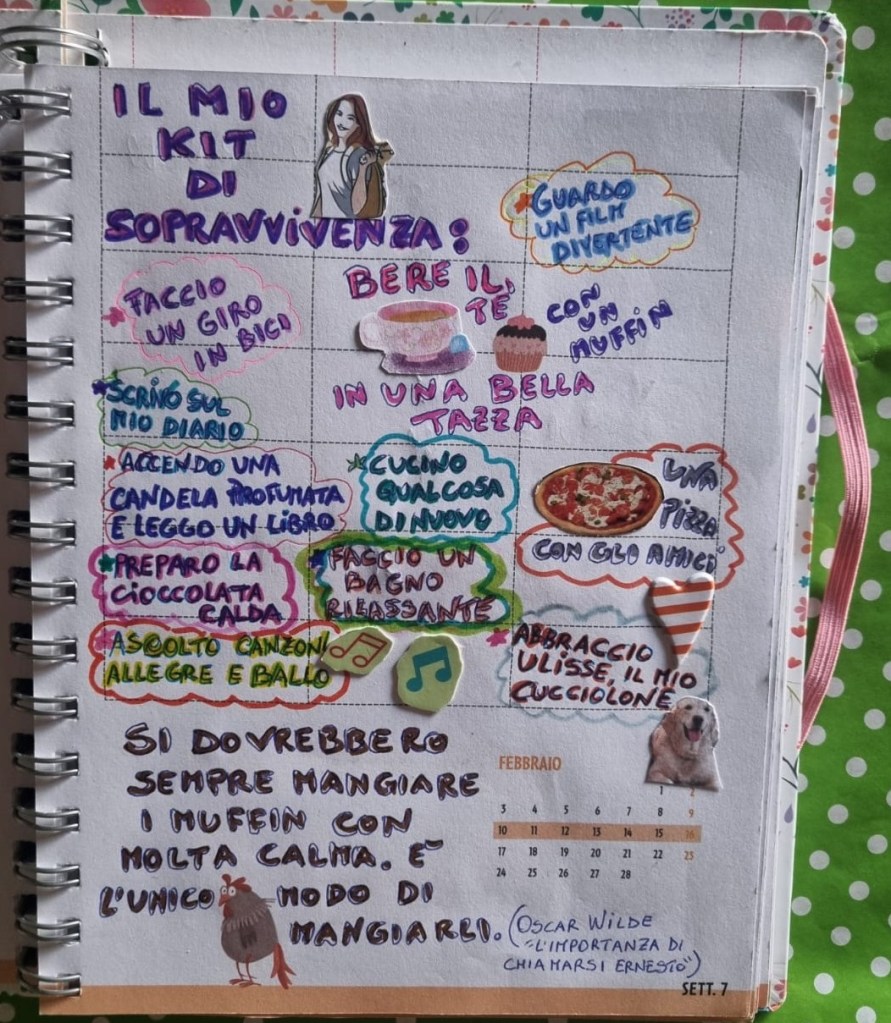 IL MIO
KIT
DI
SOPRAVVIVENZA:
GUARDO
UN FILM
DIVERTENTE
FACCIO
UN GIRO
IN BICI
BERE IL
TÈ
CON
UN
MUFFIN
IN UNA BELLA
TAZZA
SCRIVO SUL
MIO DIARIO
ACCENDO UNA
CANDELA PROFUMATA
E LEGGO UN LIBRO
CUCINO
QUALCOSA
DI NUOVO
UNA
PIZZA
CON GLI AMICI
PREPARO LA
CIOCCOLATA
CALDA
FACCIO UN
BAGNO
RILASSANTE
ASCOLTO CANZONI
ALLEGRE E BALLO
ABBRACCIO
ULISSE, IL MIO
CUCCIOLONE
SI DOVREBBERO
SEMPRE MANGIARE
I MUFFIN CON
MOLTA CALMA. È
L'UNICO MODO DI
MANGIARLI.
(OSCAR WILDE
"L'IMPORTANZA DI
CHIAMARSI ERNESTO")
FEBBRAIO
1 2
3 4 5 6 7 8 9
10 11 12 13 14 15 16
17 18 19 20 21 22 23
24 25 26 27 28
SETT. 7